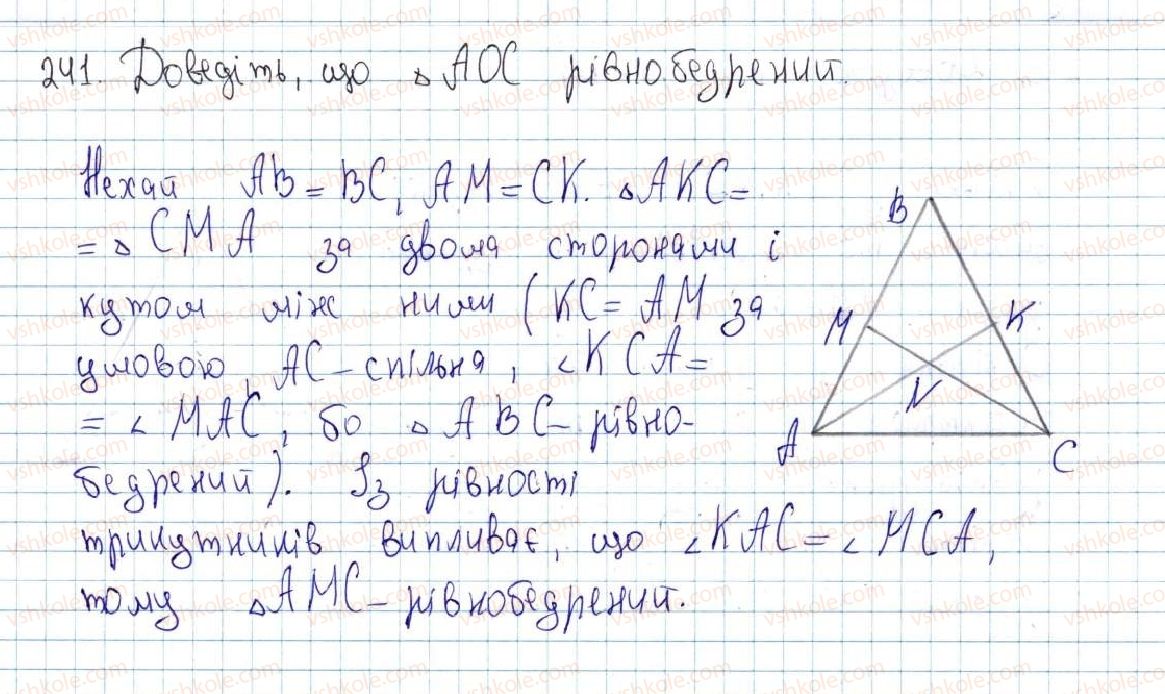 241. Доведіть, що △AOC рівнобедрений.
Нехай AB = BC, AM = CK. △AKC =
= △CMA за двома сторонами і
кутом між ними (KC = AM за
умовою, AC - спільна, ∠KCA =
= ∠MAC, бо △ABC - рівно-
бедрений). Із рівності
трикутників випливає, що ∠KAC = ∠MCA,
тому △AMC - рівнобедрений.
B
M
K
N
A
C
vshkole.com